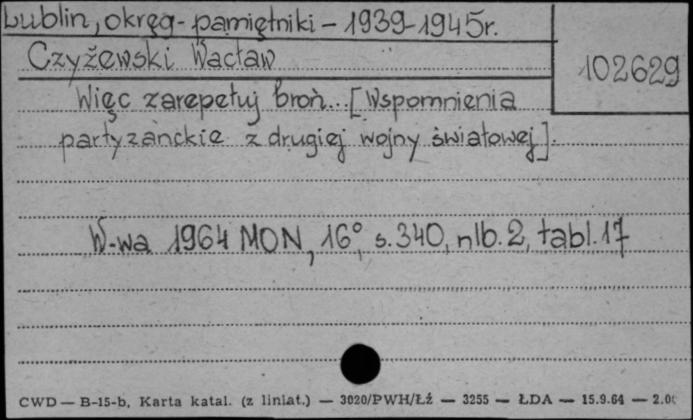 Lublin, okręg - pamiętniki - 1939-1945r.
Czyżewski Wacław
102629
Więc zarepetuj broń... [Wspomnienia
partyzanckie z drugiej wojny światowej].
W-wa 1964 MON, 16°, s. 340, nlb. 2, tabl. 17
CWD — B-15-b, Karta katal. (z liniat.) — 3020/PWH/Łź — 3255 — ŁDA — 15.9.64 — 2.00